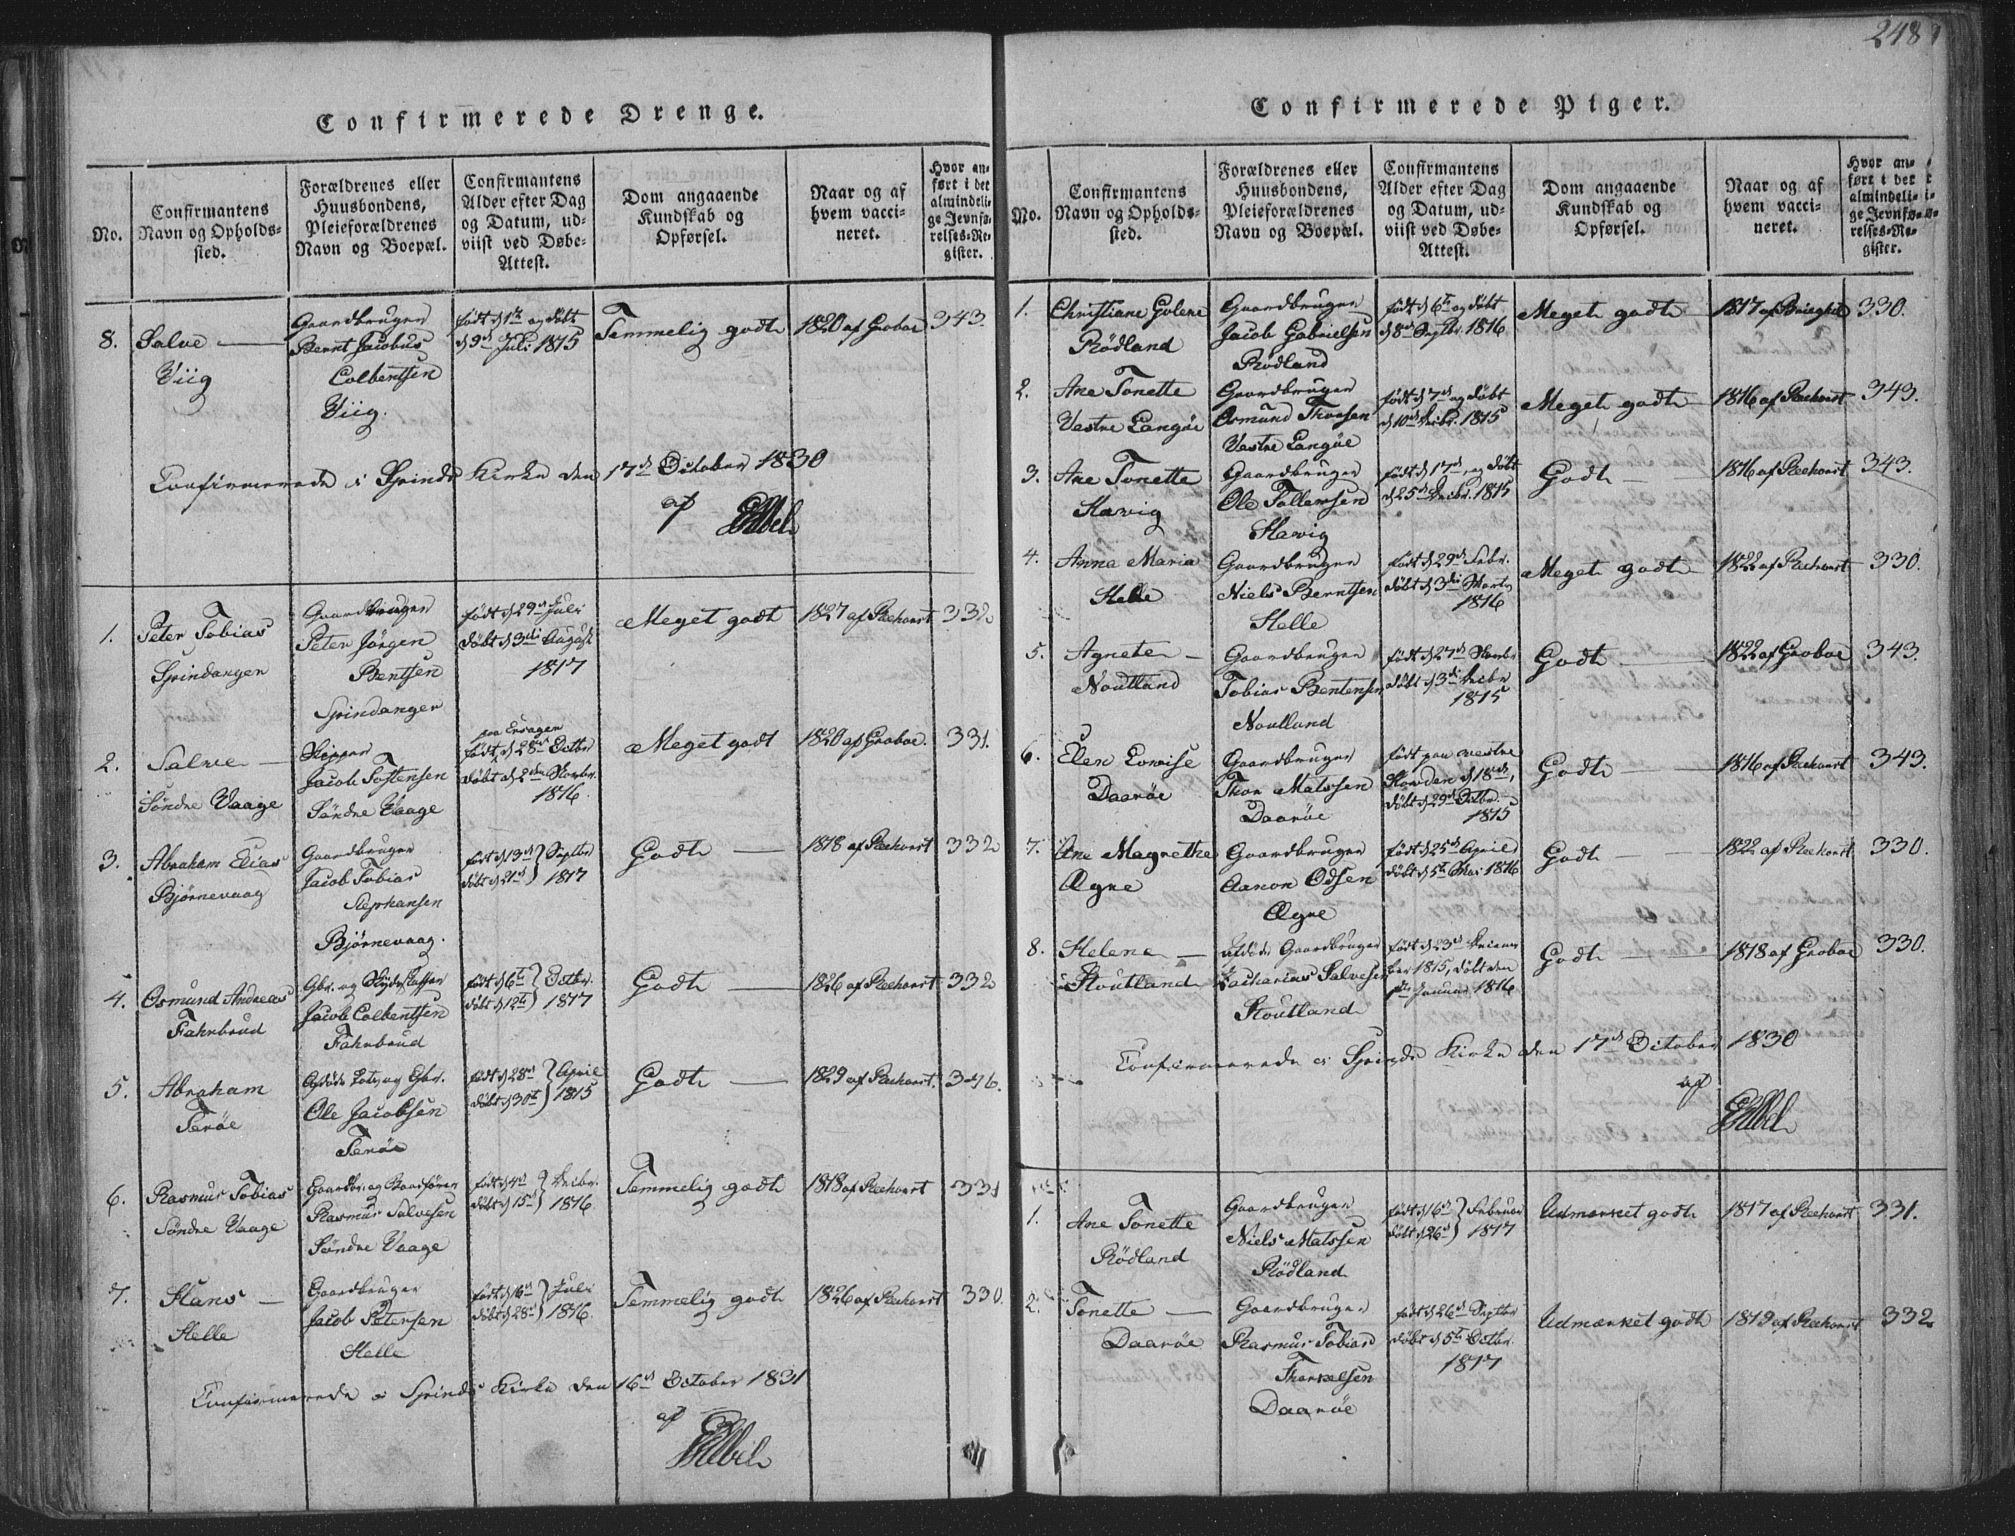 248
Confirmerede Drenge.
No.
Confirmantens
Navn og Opholds-
sted.
Forældrenes eller
Huusbondens,
Pleieforældrenes
Navn og Boepæl.
Confirmantens
Alder efter Dag
og Datum, ud-
viist ved Døbe-
Attest.
Dom angaaende
Kundskab og
Opførsel.
Naar og af
hvem vacci-
neret.
Hvor an-
ført i det
almindeli-
ge Jevnfø-
relses-Re-
gister.
8.
Salve
Viig
Gaardbruger
Bernt Jacobus
Colbentsen
Viig.
født d 1te og døbt
d 9de Juli 1815
Temmelig godt
1820 af Groboe
343.
Confirmerede i Spinds Kirke den 17de October 1830
af
1.
Peter Tobias
Spindanger
Gaardbruger
Peter Jörgen
Bentsen
Spindanger
født d 29de Juli
døbt d 3die August
1817
Meget godt
1827 af Reehorst
332
2.
Salve
Söndre Vaage
Skipper
Jacob Tostensen
Söndre Vaage
født d 28de Octbr
døbt d 2den Novbr.
1816.
Meget godt
1820 af Groboe.
331.
3.
Abraham Elias
Bjørnevaag
Gaardbruger
Jacob Tobias
Stephansen
Bjørnevaag.
født d 13de } Septbr
døbt d 21de } 1817
Godt
1818 af Reehorst
332
4.
Osmund Andreas
Fahrbrud
Gbr. og
Jacob Colbentsen
Fahrbrud
født d 6te } Octbr.
døbt d 12te } 1817
Godt
1826 af Reehorst
332
5.
Abraham
Terøe
Afdøde Lots og Gbr.
Ole Jacobsen
Terøe
født d 28de } April
døbt d 30te } 1815
Godt
1829 af Reehorst.
346.
6.
Rasmus Tobias
Söndre Vaage
Gaardbr. og
Rasmus Salvesen
Söndre Vaage
født d 4de } Decbr.
døbt d 15de } 1816
Temmelig godt
1818 af Reehorst
331
7.
Hans
Helle
Gaardbruger
Jacob Petersen
Helle
født d 16de } Juli
døbt d 28de } 1816.
Temmelig godt
1826 af Reehorst
330.
Confirmerede i Spinds Kirke den 16de October 1831
af
Confirmerede Piger.
No.
Confirmantens
Navn og Opholds-
sted.
Forældrenes eller
Huusbondens,
Pleieforældrenes
Navn og Boepæl.
Confirmantens
Alder efter Dag
og Datum, ud-
viist ved Døbe-
Attest.
Dom angaaende
Kundskab og
Opførsel.
Naar og af
hvem vacci-
neret.
Hvor an-
ført i det
almindeli-
ge Jevnfø-
relses-Re-
gister.
1.
Christiane Golene
Rödland
Gaardbruger
Jacob Gabrielsen
Rödland
født d 6te og døbt
d 8de Septbr. 1816
Meget godt
1817 af
330.
2.
Ane Tonette
Vestre Langøe
Gaardbruger
Osmund Thorsen
Vestre Langøe
født d 7de og døbt
d 10de Decbr. 1815
Meget godt
1816 af Reehorst
343.
3.
Ane Tonette
Havig
Gaardbruger
Ole Tollersen
Havig
født d 17de og døbt
d 25de Decbr. 1815
Godt
1816 af Reehorst
343.
4.
Anna Maria
Helle
Gaardbruger
Niels Berntsen
Helle
født d 29de Febr.
døbt d 3die Marts
1816
Meget godt
1822 af Reehorst
330.
5.
Agnete
Noutland
Gaardbruger
Tobias Bentensen
Noutland
født d 27de Novbr
døbt d 3die Decbr
1815
Godt
1822 af Groboe
343.
6.
Elen Lovise
Daarøe
Gaardbruger
Thor Matssen
Daarøe
født paa vestre
d 18de,
døbt d 29de Octbr.
1815
Godt
1816 af Reehorst
343.
7.
Ane Magrethe
Øgne
Gaardbruger
Aanon Odsen
Øgne
født d 25de April
døbt d 5te Mai 1816
Godt
1822 af Reehorst
330.
8.
Helene
Stoutland
afdøde Gaardbruger
Zacharias Salvesen
Stoutland
født d 23de Decem-
ber 1815, døbt den
Januar 1816
Godt
1818 af Groboe
330.
Confirmerede i Spinds Kirke den 17de October 1830
af
1.
Ane Tonette
Rödland
Gaardbruger
Niels Matssen
Rödland
født d 16de } Februar
døbt d 26de } 1817
Udmærket godt
1817 af Reehorst
331.
2.
Tonette
Daarøe
Gaardbruger
Rasmus Tobias
Thorkelsen
Daarøe
født d 26de Septbr
døbt d 5te Octbr.
1817
Udmærket godt
1819 af Reehorst
332